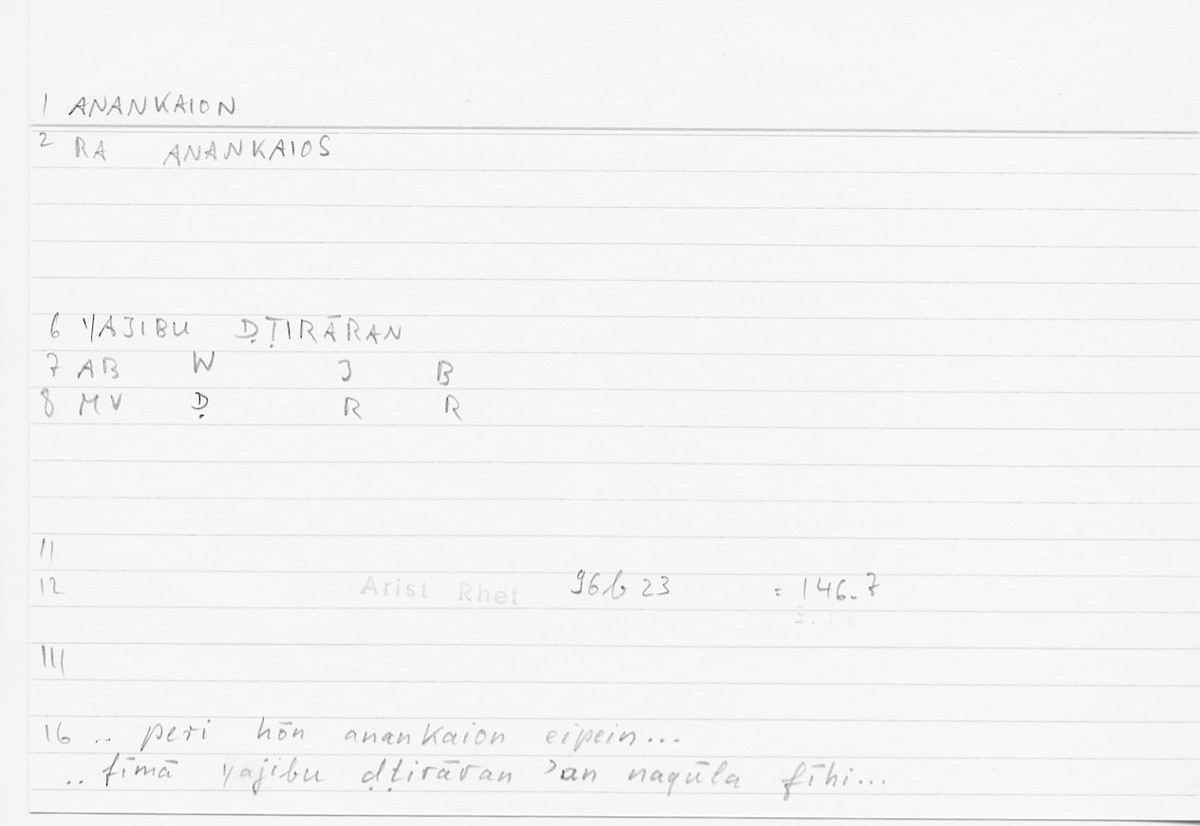 1 ANANKAION
2 RA ANANKAIOS
6 YAJIBU ḌṬIRĀRAN
7 AB W J B
8 MV Ḍ R R
11
12 Arist Rhet 96b 23 = 146.7
16 .. peri hōn anankaion eipein...
.. fīmā yajibu ḍṭirāran ʾan naqūla fīhi...